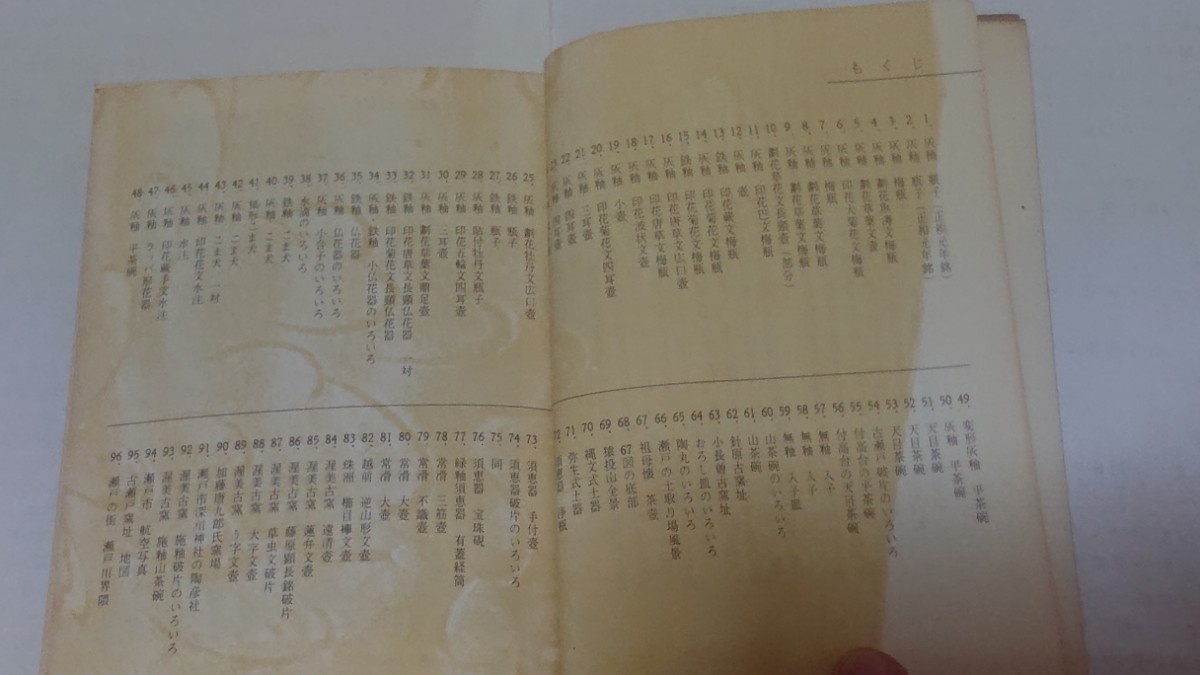 もくじ
1. 灰釉 瓶子(正和元年銘)
2. 灰釉 瓶子(正和元年銘)
3. 灰釉 梅瓶
4. 灰釉 劃花魚濤文梅瓶
5. 灰釉 劃花草葉文壺
6. 灰釉 印花大菊花文梅瓶
7. 灰釉 梅瓶
8. 灰釉 劃花草葉文梅瓶
9. 灰釉 劃花草葉文梅瓶
10. 劃花草花文長頸壺(部分)
11. 灰釉 印花巴文梅瓶
12. 灰釉 壺
13. 鉄釉 印花蕨文梅瓶
14. 灰釉 印花菊花文梅瓶
15. 鉄釉 印花菊花文梅瓶
16. 灰釉 印花唐草文広口壺
17. 灰釉 印花唐草文梅瓶
18. 灰釉 印花波状文壺
19. 灰釉 小壺
20. 灰釉 印花菊花文四耳壺
21. 灰釉 三耳壺
22. 灰釉 四耳壺
灰釉 四耳壺
25. 灰釉 劃花牡丹文広口壺
26. 鉄釉 瓶子
27. 鉄釉 瓶子
28. 灰釉 貼付牡丹文瓶子
29. 灰釉 印花五輪文四耳壺
30. 灰釉 三耳壺
31. 灰釉 劃花草葉文贈足壺
32. 鉄釉 印花唐草文長頸仏花器 一対
33. 鉄釉 印花菊花文長頸仏花器
34. 灰釉・鉄釉 小仏花器のいろいろ
35. 鉄釉 仏花器
36. 灰釉 仏花器のいろいろ
37. 灰釉 小合子のいろいろ
38. 水滴のいろいろ
39. 鉄釉 こま犬
40. 灰釉 こま犬
41. 狛形こま犬
42. 灰釉 こま犬
43. 灰釉 こま犬 一対
44. 灰釉 印花花文水注
45. 灰釉 水注
46. 灰釉 印花蕨手文水注
47. 灰釉 ラッパ形花器
48. 灰釉 平茶碗
49. 変形灰釉 平茶碗
50. 灰釉 平茶碗
51. 天目茶碗
52. 天目茶碗
53. 天目茶碗
54. 古瀬戸破片のいろいろ
55. 付高台の平茶碗
56. 付高台の天目茶碗
57. 無釉 入子
58. 無釉 入子
59. 無釉 入子皿
60. 山茶碗のいろいろ
61. 山茶碗
62. 針原古窯址
63. 小長曽古窯址
64. おろし皿のいろいろ
65. 陶丸のいろいろ
66. 瀬戸の土取り場風景
67. 祖母懐 茶壺
68. 67図の底部
69. 猿投山全景
70. 縄文式土器
71. 弥生式土器
72. 須恵器 浄瓶
73. 須恵器 手付壺
74. 須恵器破片のいろいろ
75. 同
76. 須恵器 宝珠硯
77. 緑釉須恵器 有蓋経筒
78. 常滑 三筋壺
79. 常滑 不識壺
80. 常滑 大壺
81. 常滑 大壺
82. 越前 逆山形文壺
83. 珠洲 櫛目縁文壺
84. 渥美古窯 遠清壺
85. 渥美古窯 蓮弁文壺
86. 渥美古窯 藤原顕長銘破片
87. 渥美古窯 草虫文破片
88. 渥美古窯 大字文壺
89. 渥美古窯 り字文壺
90. 加藤唐九郎氏窯場
91. 瀬戸市深川神社の陶彦社
92. 渥美古窯 施釉破片のいろいろ
93. 渥美古窯 施釉山茶碗
94. 瀬戸市 航空写真
95. 古瀬戸窯址 地図
96. 瀬戸の街 瀬戸川界隈